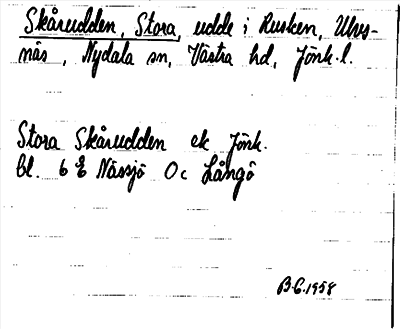 Skårudden, Stora, udde i Rusken, Ulvs-
näs, Nydala sn, Västra hd, Jönk. l.
Stora Skårudden ek Jönk.
bl. 6 E Nässjö 0c Långö
B.C. 1958